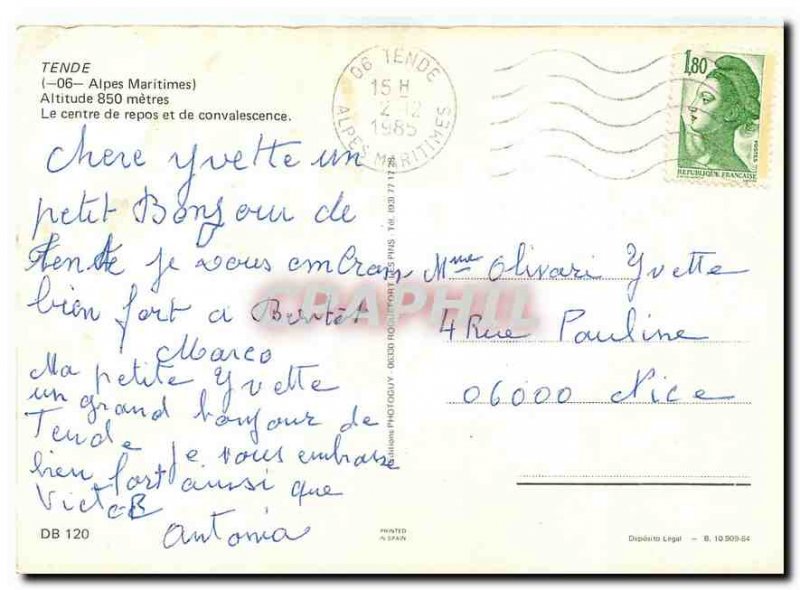 TENDE
(—06— Alpes Maritimes)
Altitude 850 mètres
Le centre de repos et de convalescence.
06 TENDE
15 H
2-12
1985
ALPES MARITIMES
1,80
POSTES
REPUBLIQUE FRANCAISE
chere Yvette un
petit Bonjour de
Tende je vous embrass
bien fort a
Marco
Ma petite Yvette
un grand bonjour de
Tende je vous embrasse
bien fort aussi que
Victor
Antonia
Editions PHOTOGUY - 06330 ROQUEFORT LES PINS - Tél. (93) 77
CRAPHIL
Mme Olivari Yvette
4 Rue Pauline
06000 Nice
DB 120
PRINTED
IN SPAIN
Depósito Legal — B. 10.909-84